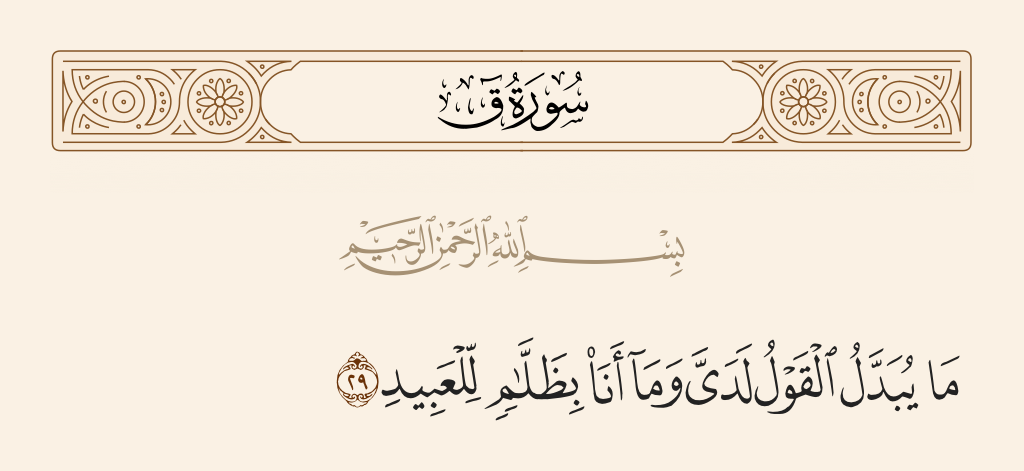 سُورَةُ قٓ
بِسْمِ ٱللَّهِ ٱلرَّحْمَٰنِ ٱلرَّحِيمِ
مَا يُبَدَّلُ ٱلْقَوْلُ لَدَىَّ وَمَآ أَنَا۠ بِظَلَّٰمٍ لِّلْعَبِيدِ ٢٩